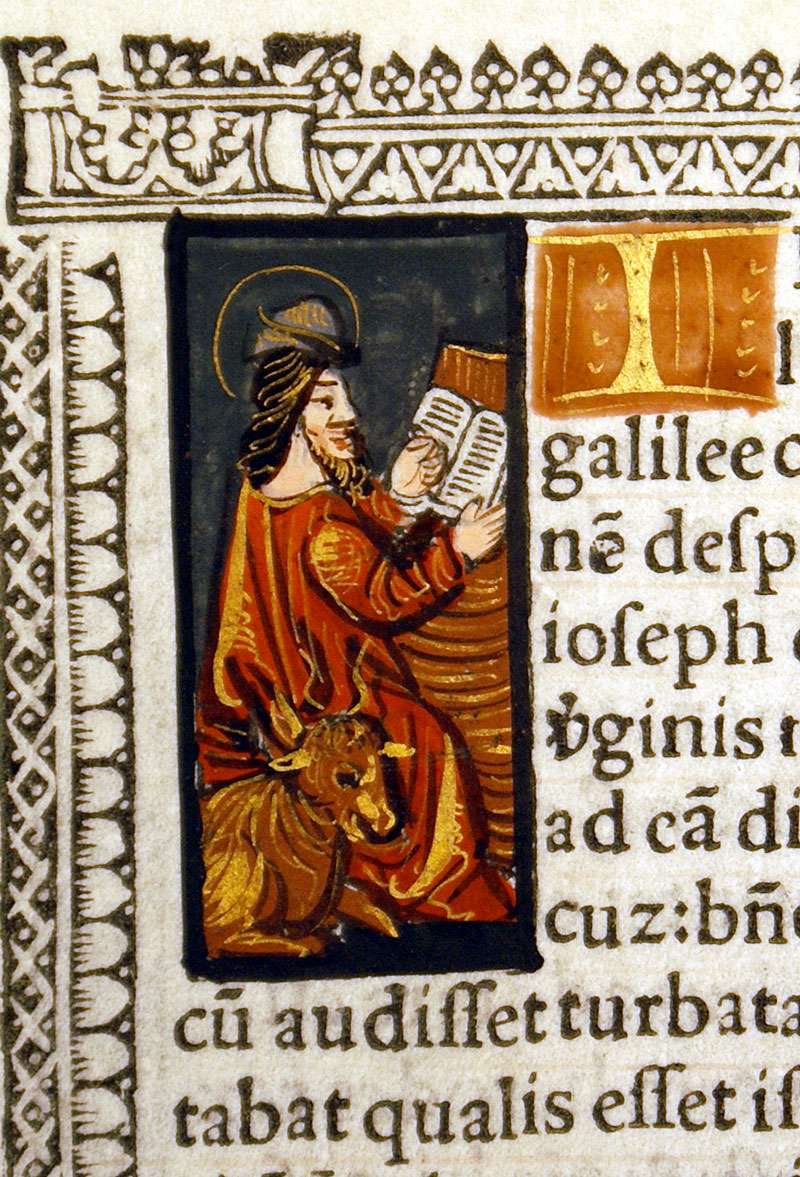 I
galilee
nē deſp
ioſeph
ꝟginis
ad cā di
cuz:bñ
cū audiſſet turbata
tabat qualis eſſet iſ